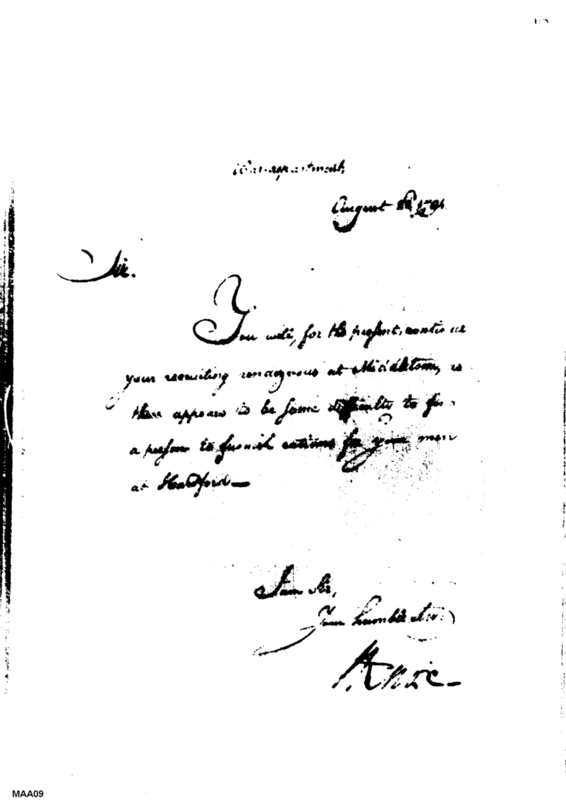 War department
August 22d 1791
Sir.
You will, for the present, continue
your recruiting rendezvous at Middletown, as
there appears to be some difficulty to find
a person to furnish rations for your men
at Hartford—
I am Sir,
Your humble Servt
HKnox
MAA09